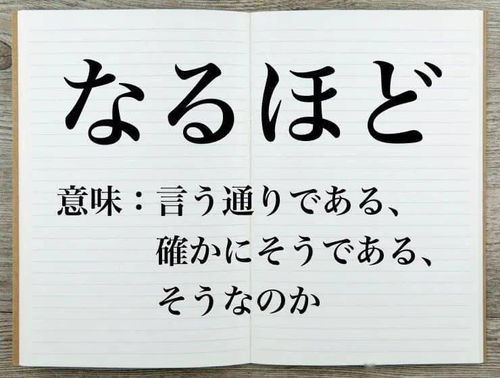 なるほど
意味：言う通りである、
確かにそうである、
そうなのか